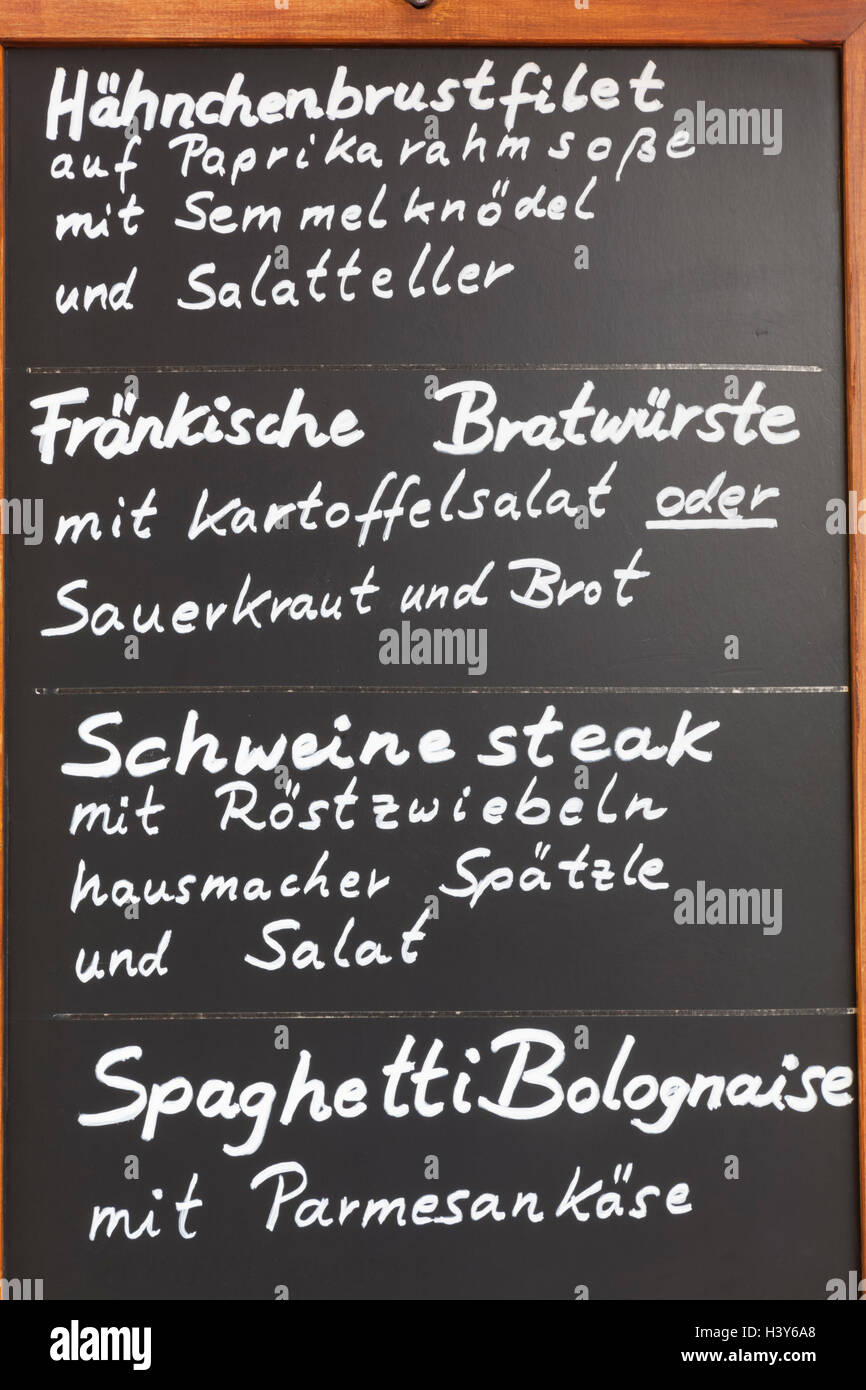 Hähnchenbrustfilet
auf Paprikarahmsoße
mit Semmelknödel
und Salatteller
Fränkische Bratwürste
mit Kartoffelsalat oder
Sauerkraut und Brot
Schweinesteak
mit Röstzwiebeln
hausmacher Spätzle
und Salat
Spaghetti Bolognaise
mit Parmesankäse
alamy
Image ID: H3Y6A8
www.alamy.com